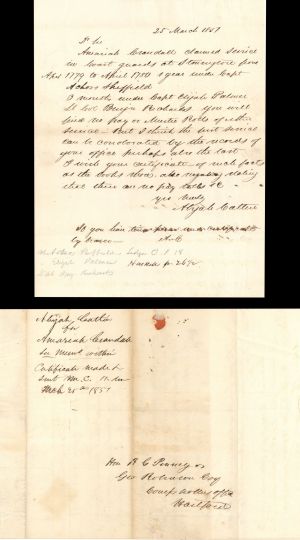 25 March 1851
Dr Sir
Amariah Crandall claimed service
in coast guards at Stonington from
April 1779 to April 1780 1 year under Capt
Sheffield
3 months under Capt Elijah Palmer
You will
find no pay or Muster Rolls of either
service - But I think the first service
can be corroborated by the records of
your office perhaps also the last
I wish your certificate of such facts
as the books show, also stating
that there are no pay rolls &c
yrs truly
Abijah Catlin
by name A.C
Sheffield Ledger
Elijah Palmer
Abijah Catlin
for
Amariah Crandall
within
Certificate made &
sent
Mch 25th 1851
Hon R C Pinney or
Geo Robinson Esq
Comptrollers office
Hartford